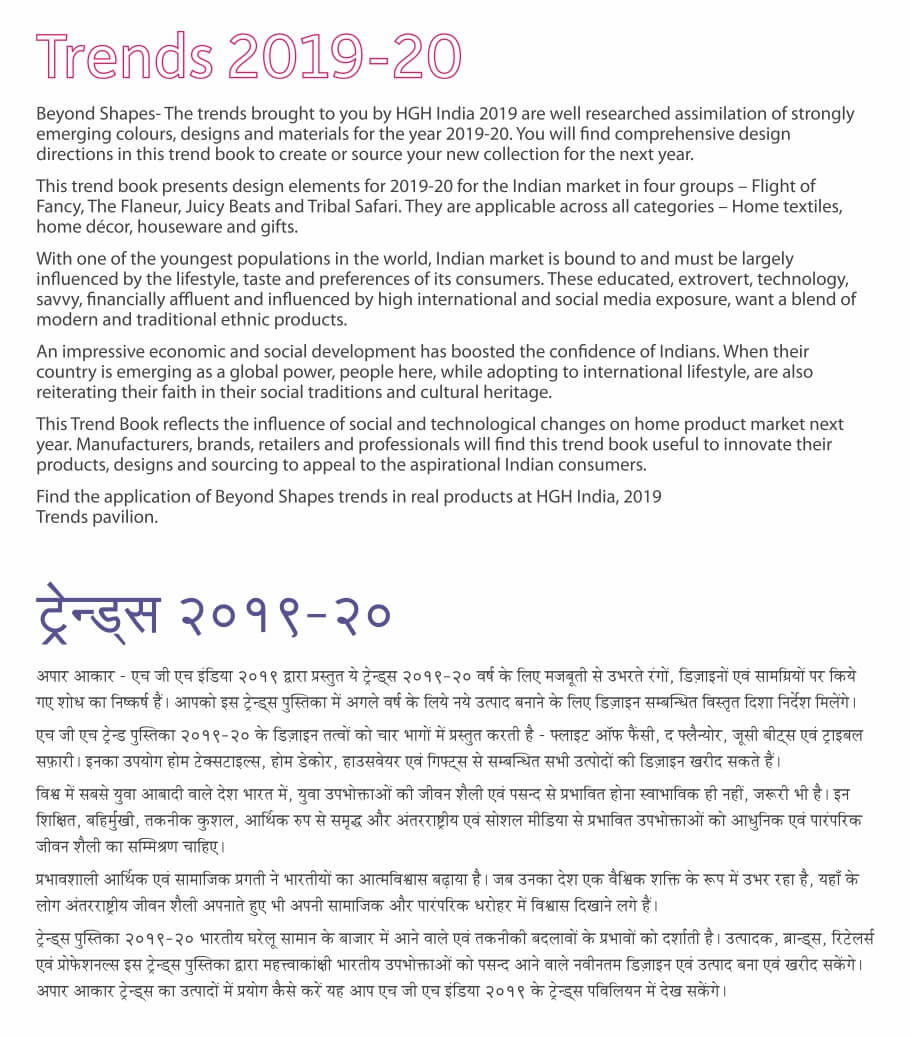 Trends 2019-20
Beyond Shapes- The trends brought to you by HGH India 2019 are well researched assimilation of strongly
emerging colours, designs and materials for the year 2019-20. You will find comprehensive design
directions in this trend book to create or source your new collection for the next year.
This trend book presents design elements for 2019-20 for the Indian market in four groups – Flight of
Fancy, The Flaneur, Juicy Beats and Tribal Safari. They are applicable across all categories – Home textiles,
home décor, houseware and gifts.
With one of the youngest populations in the world, Indian market is bound to and must be largely
influenced by the lifestyle, taste and preferences of its consumers. These educated, extrovert, technology,
savvy, financially affluent and influenced by high international and social media exposure, want a blend of
modern and traditional ethnic products.
An impressive economic and social development has boosted the confidence of Indians. When their
country is emerging as a global power, people here, while adopting to international lifestyle, are also
reiterating their faith in their social traditions and cultural heritage.
This Trend Book reflects the influence of social and technological changes on home product market next
year. Manufacturers, brands, retailers and professionals will find this trend book useful to innovate their
products, designs and sourcing to appeal to the aspirational Indian consumers.
Find the application of Beyond Shapes trends in real products at HGH India, 2019
Trends pavilion.
ट्रेन्ड्स २०१९-२०
अपार आकार - एच जी एच इंडिया २०१९ द्वारा प्रस्तुत ये ट्रेन्ड्स २०१९-२० वर्ष के लिए मजबूती से उभरते रंगों, डिज़ाइनों एवं सामग्रियों पर किये
गए शोध का निष्कर्ष हैं। आपको इस ट्रेन्ड्स पुस्तिका में अगले वर्ष के लिये नये उत्पाद बनाने के लिए डिज़ाइन सम्बन्धित विस्तृत दिशा निर्देश मिलेंगे।
एच जी एच ट्रेन्ड पुस्तिका २०१९-२० के डिज़ाइन तत्वों को चार भागों में प्रस्तुत करती है - फ्लाइट ऑफ फैंसी, द फ्लैन्योर, जूसी बीट्स एवं ट्राइबल
सफ़ारी। इनका उपयोग होम टेक्सटाइल्स, होम डेकोर, हाउसवेयर एवं गिफ्ट्स से सम्बन्धित सभी उत्पोदों की डिज़ाइन खरीद सकते हैं।
विश्व में सबसे युवा आबादी वाले देश भारत में, युवा उपभोक्ताओं की जीवन शैली एवं पसन्द से प्रभावित होना स्वाभाविक ही नहीं, जरूरी भी है। इन
शिक्षित, बहिर्मुखी, तकनीक कुशल, आर्थिक रुप से समृद्ध और अंतरराष्ट्रीय एवं सोशल मीडिया से प्रभावित उपभोक्ताओं को आधुनिक एवं पारंपरिक
जीवन शैली का सम्मिश्रण चाहिए।
प्रभावशाली आर्थिक एवं सामाजिक प्रगती ने भारतीयों का आत्मविश्वास बढ़ाया है। जब उनका देश एक वैश्विक शक्ति के रूप में उभर रहा है, यहाँ के
लोग अंतरराष्ट्रीय जीवन शैली अपनाते हुए भी अपनी सामाजिक और पारंपरिक धरोहर में विश्वास दिखाने लगे हैं।
ट्रेन्ड्स पुस्तिका २०१९-२० भारतीय घरेलू सामान के बाजार में आने वाले एवं तकनीकी बदलावों के प्रभावों को दर्शाती है। उत्पादक, ब्रान्ड्स, रिटेलर्स
एवं प्रोफेशनल्स इस ट्रेन्ड्स पुस्तिका द्वारा महत्त्वाकांक्षी भारतीय उपभोक्ताओं को पसन्द आने वाले नवीनतम डिज़ाइन एवं उत्पाद बना एवं खरीद सकेंगे।
अपार आकार ट्रेन्ड्स का उत्पादों में प्रयोग कैसे करें यह आप एच जी एच इंडिया २०१९ के ट्रेन्ड्स पविलियन में देख सकेंगे।